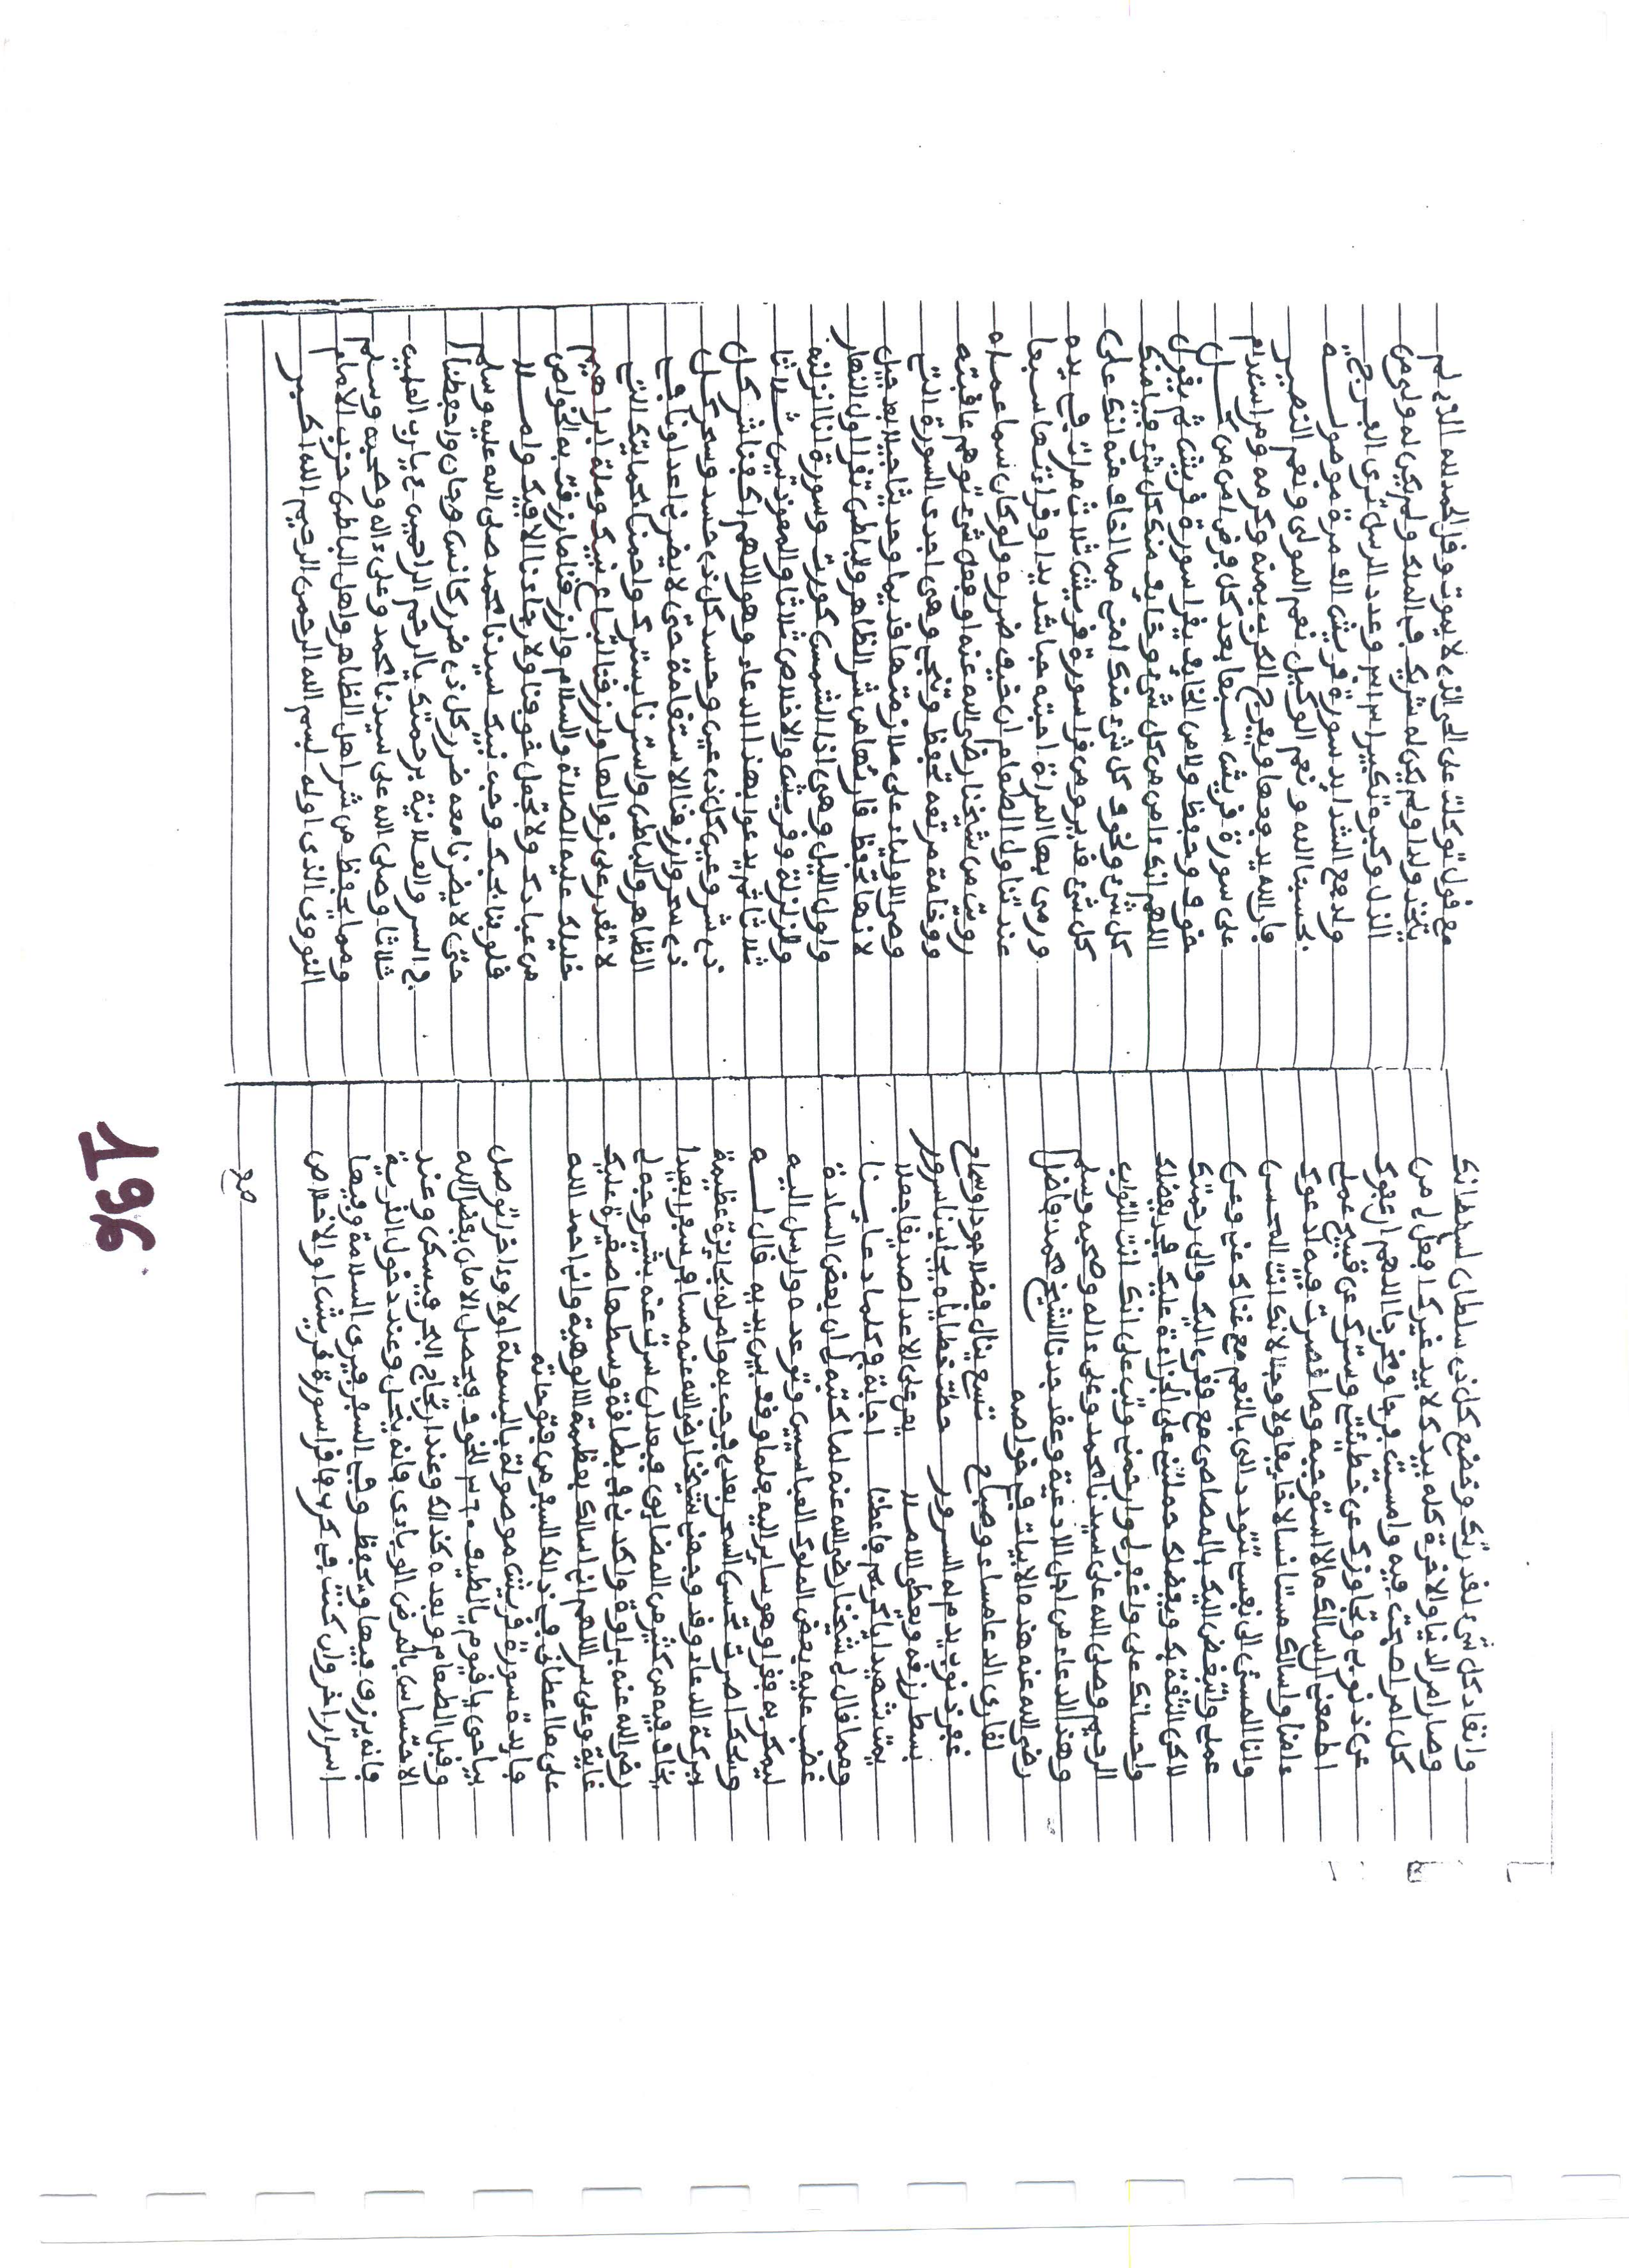 وانقاد كل شىء لقدرتك وخضع كل ذى سلطان لسلطانك
وصار امر الدنيا والاخرة كله بيدك لا بيد غيرك اجعل لى من
كل امر اصبحت فيه وامسيت فرجا ومخرجا اللهم ان عفوك
عن ذنوبى وتجاوزك عن خطيئتى وسترك عن قبيح عملى
اطمعنى ان اسالك ما لا استوجبه وما قصرت فيه ادعوك
ءامنا واسالك مستانسا لا خايفا ولا وجلا لانك انت المحسن
وانا المسىء الى نفسى تتودد الى بالنعم مع غناك عنى وعن
عملى واتبغض اليك بالمعاصى مع فقرى اليك والى رحمتك
لاكن الثقة بك وبفضلك حملتنى على الجراءة عليك فجد بفضلك
واحسانك على واغفر لى وارحمنى وتب على انك انت التواب
الرحيم وصلى الله على سيدنا محمد وعلى ءاله وصحبه وسلم
وهذا الدعاء من اجل الادعية وعقد جدنا الشيخ محمد فاضل
رضى الله عنه هذه الابيات فى خواصه
لقارى الدعا مساء وصباح تسع ينال فضلا جودا وسماح
غفر ذنوب يدم له السرور حطت خطاياه يجاب ناسرور
بسط رزقه ويعطى الاملا يعن على الاعدا صديقا جعلا
يمت شهيدا يا كريم واعطنا اجابة وكلما دعايــنا
ومما قال لى شيخنا رضى الله عنه لما كتبه لى ان بعض السادة
غضب عليه بعض الملوك العباسيين وتوعده وارسل اليه
ليمكر به فقراه وهو ساير اليه فلما وقف بين يديه قال لــه
ويحك اضرت تحسن السحر بعدى فرحب به وامر له بجايزة عظيمة
ببركة الدعاء وقد وجهنى شيخنا رضى الله عنه مسافرا سفرا بعيدا
يخاف فيه من كثير من المضايق فبعد ان سرت عنه بشىء وجه لى
رضى الله عنه براوة واكد فى بطاقة وسطها صغيرة عليك
غاية وعلى سر اللهم انى اسالك بعظمة الالوهية وانى احمد الله
على ما اعطانى فى ذالك السفر من فتوحاته
فايدة سورة قريش موصولة بالبسملة اولا وءاخرا توصل
بياحى يا قيوم يا لطيف ٣ من الخوف ويحصل الامان بفضل الله
وقبل الطعام وبعده كذالك وعند ارتجاج البحر فيسكن وعند
الاحتساس بالمرض الوبادى فانه ينحل وعند دخول القرية
فانه يرزق فيها ويحفظ وفى السفر فيرى السلامة وفيها
اسرار اخر وان كنت فى كرب فاقرا سورة قريش او الاخلاص
مع
مع قول توكلت على الحى الذى لا يموت وقل الحمد لله الذى لم
يتخذ ولدا ولم يكن له شريك فى الملك ولم يكن له ولى من
الذل وكبره تكبيرا وعدد الرسل ترى الفرج
ولدفع الشدايد سورة قريش الف مرة موصولــة
بحسبنا الله ونعم الوكيل نعم المولى ونعم النصير
فان الله يدفعها ويفرج الكرب بمنه وكرمه ومن استدام
على سورة قريش سبعا بعد كل فرض امن من كــل
خوف وحفظ ولامن الخايف يقرا سورة قريش ثم يقول
اللهم انك ءامن من كل شىء وخايف منك كل شىء فبامنك
كل شىء وخوف كل شىء منك امنى مما اخاف منه انك على
كل شىء قدير ومن قرا سورة قريش ثلاث مرات فى يده
ورمى بها المراة احبته حبا شديدا وقراءتها سبعا
عند تناول الطعام ان خيف ضرره ولو كان سما عملاه
رويت من شيخنا رضى الله عنه او فعل شىء توهم عاقبته
ووخامة مرتعه تحفظ وتنجى وهى احدى السورة التى
وصى الاولياء على ملازمتها قديما وحديثا جيلا بعد جيل
لانها تحفظ قارئها من شر الظاهر والباطن تقرا اول النهار
واول الليل وهى اذا الشمس كورت وسورة انا انزلنه
والزلزلة وقريش والاخلاص ثلاثا والمعوذتين ثــلاثا
ثلاثا ثم يدعو بهذا الدعاء وهو اللهم اكفنا شر كل
ذى شر وعين كل ذى عين وحسد كل ذى حسد وسحر كــل
ذى سحر وارزقنا الاستقامة حتى لا يضرنا اعداونا فى
الظاهر والباطن واسترنا بسترك واحمنا بحمايتك التى
لا تقدر على زوالها وارزقنا اتباع نبيك وملة ابراهيم
خليلك عليه الصلاة والسلام وارزقنا ما رزقت به الخواص
من عبادك ولا تجعل خوفنا ولا رجاءنا الا فيك وامـــلا
قلوبنا بحبك وحب نبيك سيدنا محمد صلى الله عليه وسلم
حتى لا يضرنا معه ضرر كل ذى ضرر كانس وجان واحفظنا
فى السر والعلانية برحمتك يا ارحم الراحمين ٤ يا رب العلمين
ثلاثا وصلى الله على سيدنا محمد وعلى ءاله وصحبه وسلم
ومما يحفظ من شر اهل الظاهر واهل الباطن حزب الامام
النووى الذى اوله بسم الله الرحمن الرحيم الله اكــبر
196